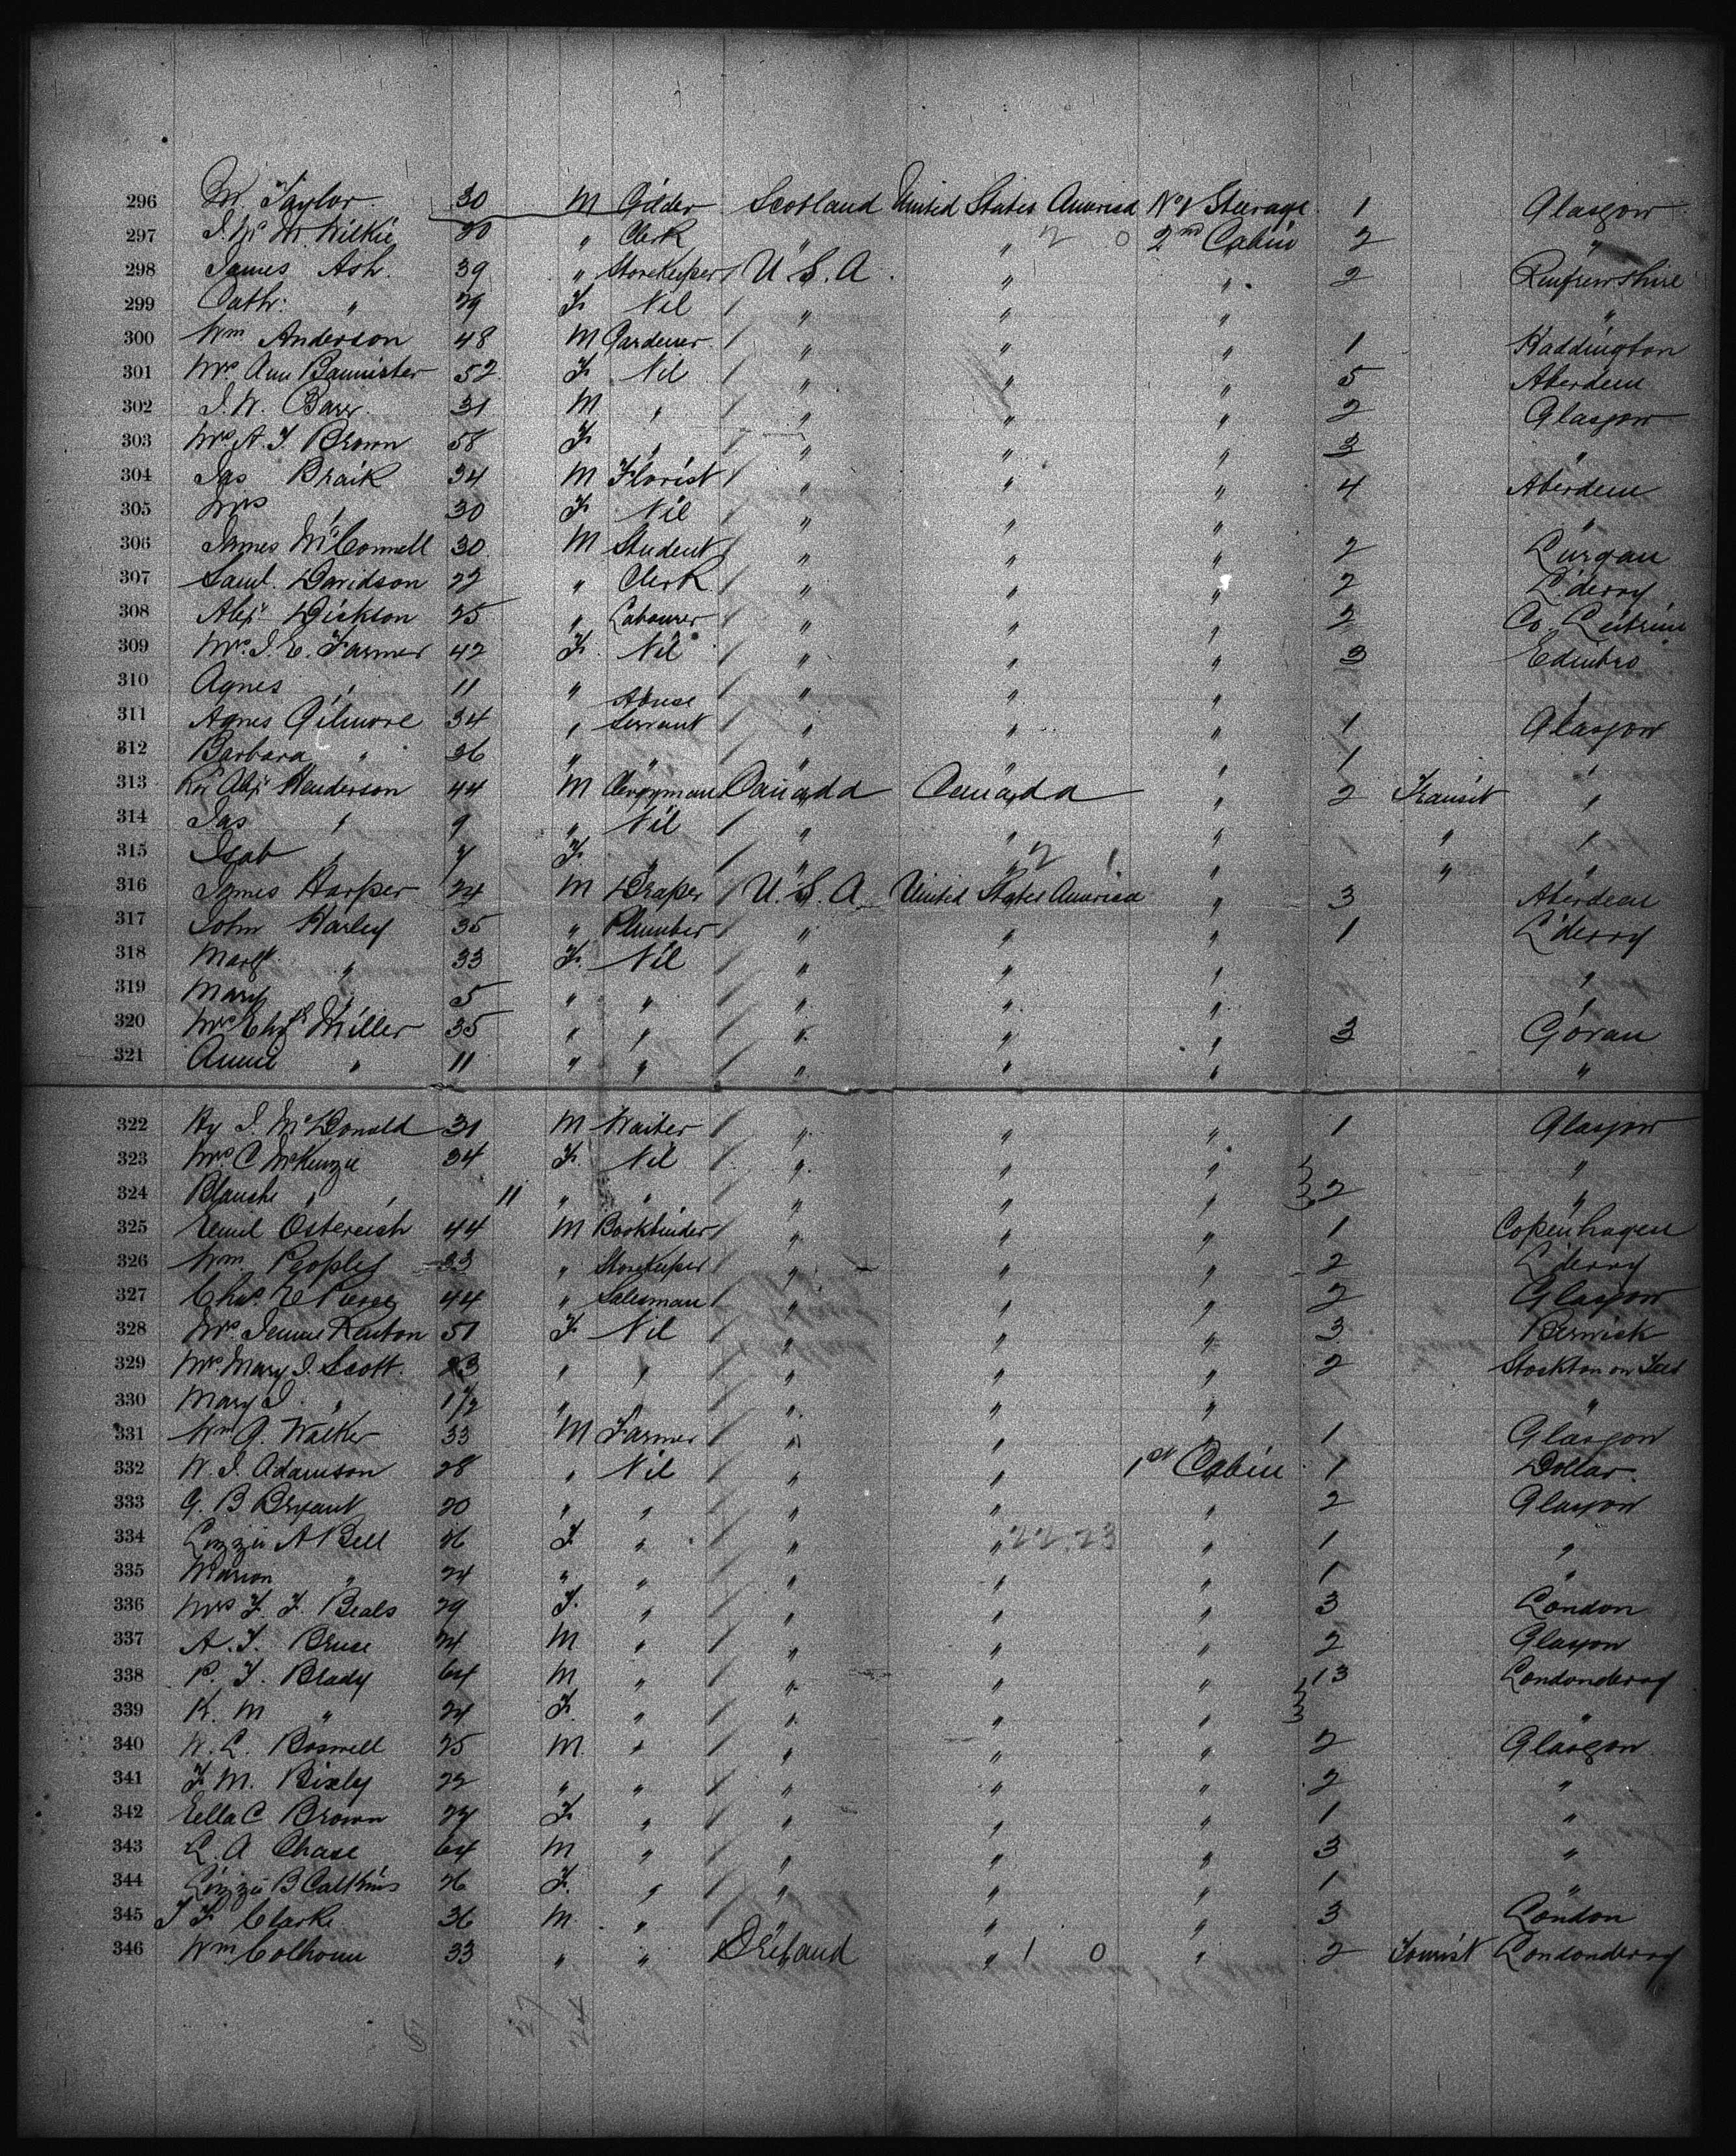 296 M. Taylor 30 M Gilder Scotland United States America No 1 Steerage 1 Glasgow
297 J. Mc M. Wilkie 20 " Clerk " " 2 0 2nd Cabin 2 "
298 James Ash. 39 " Storekeeper / U.S.A. " " 2 Renfrewshire
299 Cath: " 29 F. Nil / " " " "
300 Wm Anderson 48 M Gardener / " " " 1 Haddington
301 Mrs Ann Bannister 52 F. Nil / " " " 5 Aberdeen
302 J. W. Barr. 31 M " / " " " 2 Glasgow
303 Mrs A. J. Brown 58 F. " / " " " 3 "
304 Jas Braik 34 M Florist / " " " 4 Aberdeen
305 Mrs " 30 F. Nil / " " " "
306 James McConnell 30 M Student / " " " 2 Lurgan
307 Saml. Davidson 22 " Clerk / " " " 2 L'derry
308 Alexr Dickson 25 " Labourer / " " " 2 Co. Leitrim
309 Mrs. J. E. Farmer 42 F. Nil / " " " 3 Edinbro
310 Agnes " 11 " / " " "
311 Agnes Gilmore 34 " House Servant " " " 1 Glasgow
312 Barbara " 36 " " " " " 1 "
313 Rev Alexr Henderson 44 M Clergyman Canada Canada " 2 Transit "
314 Jas " 9 " Nil / " " " " "
315 Isab " 7 F. " / " " 2 1 " " "
316 James Harper 24 M Draper / U.S.A United States America " 3 Aberdeen
317 John Harley 35 " Plumber / " " " 1 L'derry
318 Margt. " 33 F. Nil / " " " "
319 Mary " 5 " " / " " " "
320 Mrs Miller 35 " " / " " " 3 Govan
321 Annie " 11 " " / " " " "
322 Hy J. McDonald 31 M Waiter / " " " 1 Glasgow
323 Mrs. C McKenzie 34 F. Nil / " " " "
324 Blanche " 11 " " / " " " 2 "
325 Emil Ostereich 44 M Bookbinder / " " " 1 Copenhagen
326 Wm. Peoples 33 " Storekeeper / " " " 2 L'derry
327 Chas. E Pierce 44 " Salesman / " " " 2 Glasgow
328 Mrs. Jennie Renton 51 F. Nil / " " " 3 Berwick
329 Mrs. Mary J. Scott. 23 " " / " " " 2 Stockton on Tees
330 Mary J. " 1 1/2 " / " " " "
331 Wm G. Walker 33 M Farmer / " " " 1 Glasgow
332 W. J. Adamson 28 " Nil / " " 1st Cabin 1 Dollar.
333 G. B Bryant 20 " " / " " " 2 Glasgow
334 Lizzie A Bell 26 F " / " " 22.23 " 1 "
335 Marion " 24 " " / " " " 1 "
336 Mrs F. F. Beals 29 F. " / " " " 3 London
337 A. F. Bruce 24 M " / " " " 2 Glasgow
338 P. F. Blady 64 M " / " " " 13 Londonderry
339 K. M " 24 F. " / " " " "
340 W. L. Boswell 25 M. " / " " " 2 Glasgow
341 F. M. Bixly 22 " " / " " " 2 "
342 Ella C Brown 27 F. " / " " " 1 "
343 L. A Chase 64 M " / " " " 3 "
344 Lizzie B Calkins 26 F. " / " " " 1 "
345 J F. Clarke 36 M. " / " " " 3 London
346 Wm. Colhoun 33 " " Ireland " 1 0 " 2 Tourist Londonderry